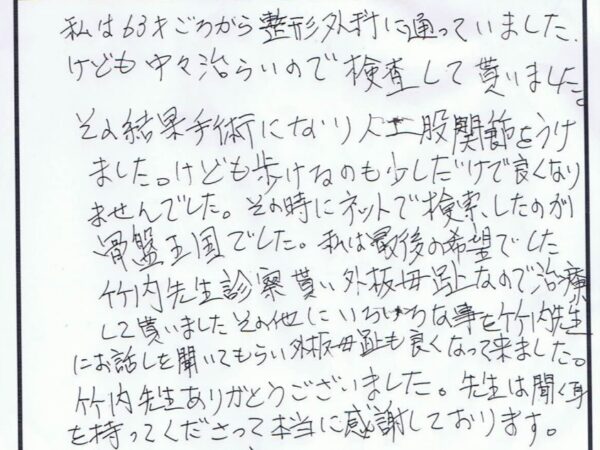 私は63才ごろから整形外科に通っていました.
けども中々治らいので検査して貰いました。
その結果手術になり人工股関節をうけ
ました。けども歩けるのも少しだけで良くなり
ませんでした。その時にネットで検索したのが
骨盤王国でした。私は最後の希望でした
竹内先生診察貰い外板母趾なので治療
して貰いましたその他にいろいろな事を竹内先生
にお話しを聞いてもらい外板母趾も良くなって来ました。
竹内先生ありがとうございました。先生は聞く耳
を持ってくださって本当に感謝しております。